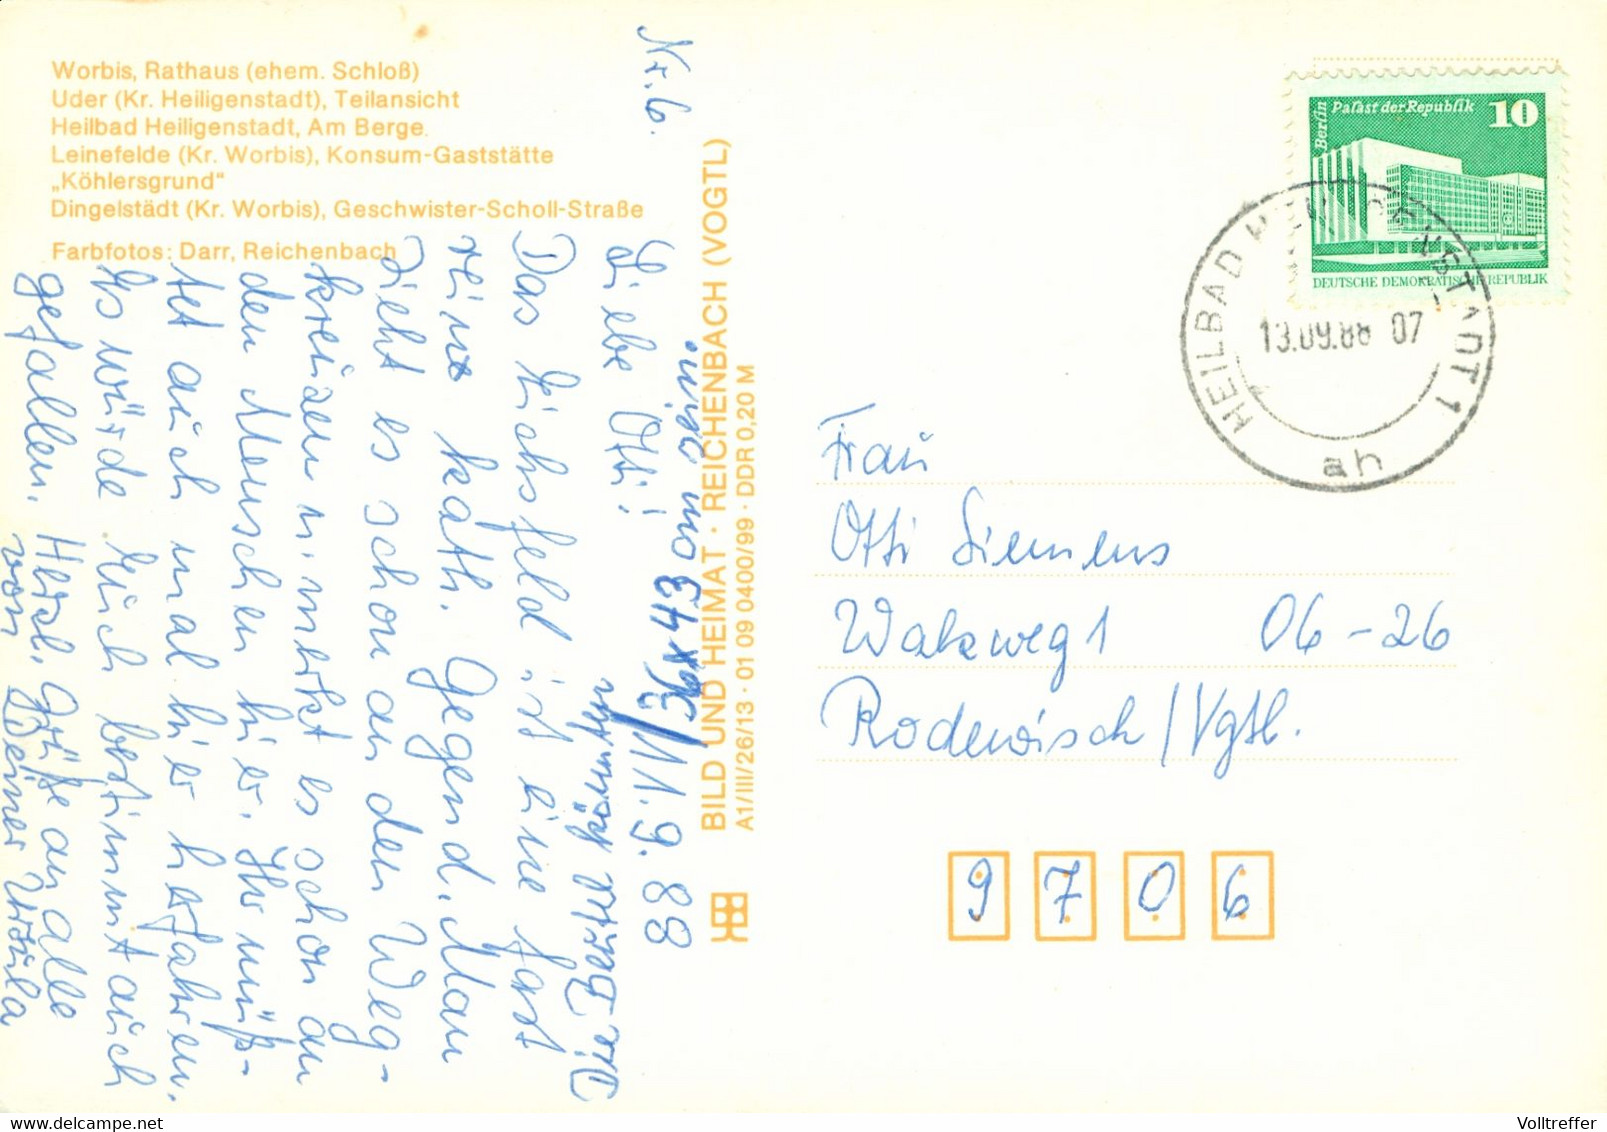 Worbis, Rathaus (ehem. Schloß)
Uder (Kr. Heiligenstadt), Teilansicht
Heilbad Heiligenstadt, Am Berge.
Leinefelde (Kr. Worbis), Konsum-Gaststätte
„Köhlersgrund“
Dingelstädt (Kr. Worbis), Geschwister-Scholl-Straße
Farbfotos: Darr, Reichenbach
Nr. 6.
11.9.88
Liebe Otti!
Das Eichsfeld ist eine fast
reine kath. Gegend. Man
sieht es schon an den Weg-
kreuzen u. merkt es schon an
den Menschen hier. Ihr müß-
tet auch mal hier herfahren.
Es würde Euch bestimmt auch
gefallen. Herzl. Grüße an alle
von Deiner Ursula
BILD UND HEIMAT · REICHENBACH (VOGTL)
A1/III/26/13 · 01 09 0400/99 · DDR 0,20 M
Berlin Palast der Republik 10
DEUTSCHE DEMOKRATISCHE REPUBLIK
HEILBAD HEILIGENSTADT 1
13.09.88 07
ah
Frau
Otti Siemens
Walkweg 1 06-26
Rodewisch/Vgtl.
9706
Volltreffer